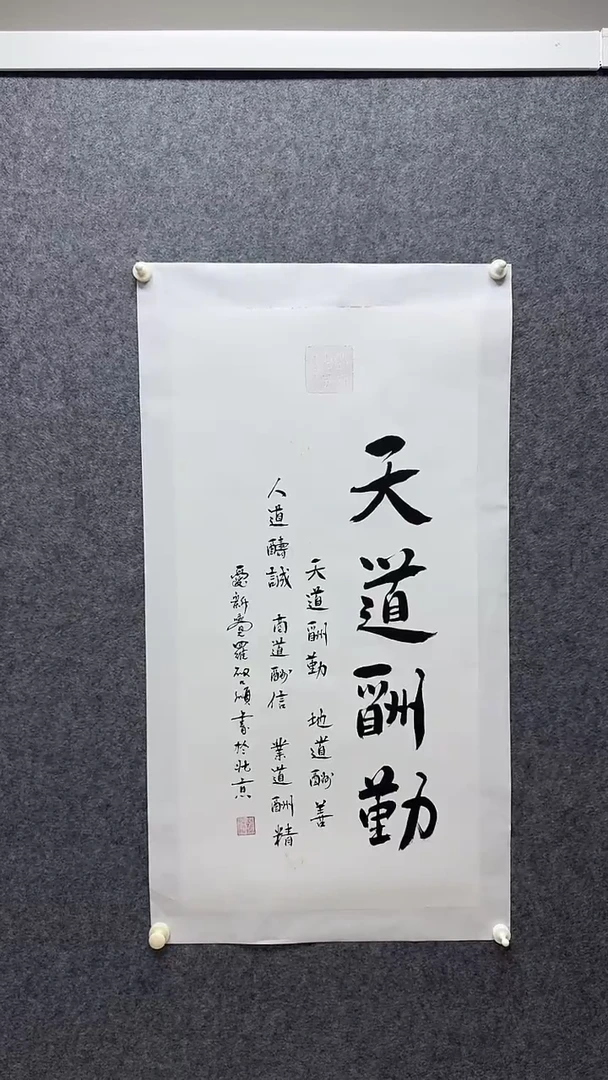 天道酬勤
天道酬勤 地道酬善
人道酬誠 商道酬信 業道酬精
愛新覺羅啟頌書於北京